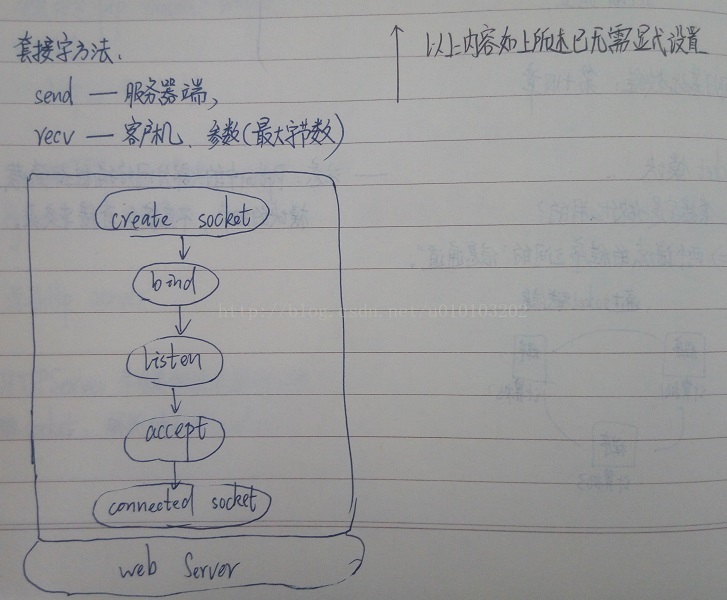 套接字方法.
↑ 以上内容如上所述已无需显式设置
send — 服务器端,
recv — 客户机、参数(最大字节数)
create socket
bind
http://blog.csdn.net/u010103202
listen
accept
connected socket
web Server